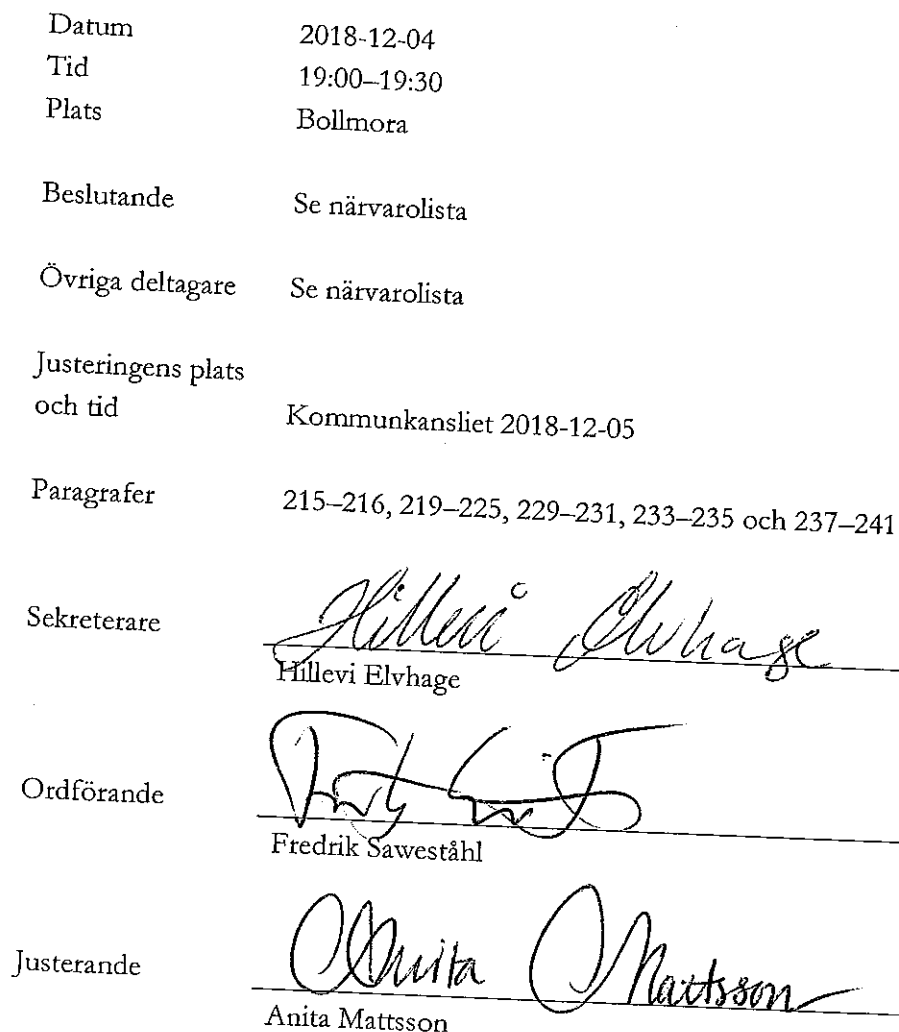 Datum 2018-12-04
Tid 19:00–19:30
Plats Bollmora
Beslutande Se närvarolista
Övriga deltagare Se närvarolista
Justeringens plats
och tid Kommunkansliet 2018-12-05
Paragrafer 215–216, 219–225, 229–231, 233–235 och 237–241
Sekreterare Hillevi Elvhage
Hillevi Elvhage
Ordförande
Fredrik Saweståhl
Justerande Anita Mattsson
Anita Mattsson